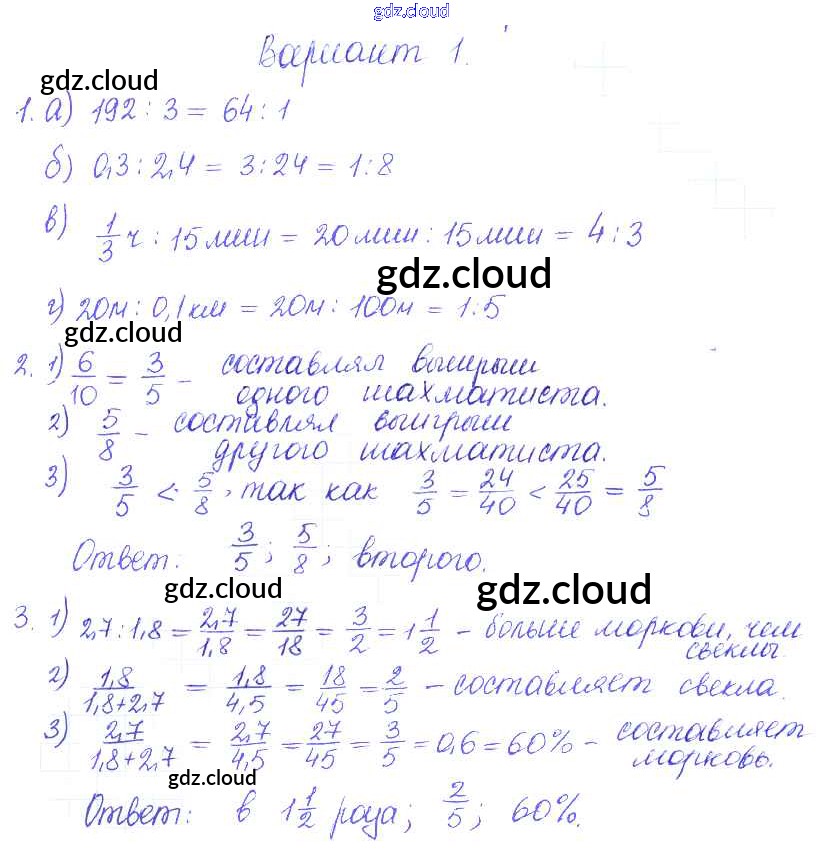 gdz.cloud
Вариант 1.
gdz.cloud
1. а) 192 : 3 = 64 : 1
б) 0,3 : 2,4 = 3 : 24 = 1 : 8
в) 1/3 ч : 15 мин = 20 мин : 15 мин = 4 : 3
gdz.cloud
г) 20м : 0,1 км = 20м : 100м = 1 : 5
gdz.cloud
2. 1) 6/10 = 3/5 - составлял выигрыш
одного шахматиста.
2) 5/8 - составлял выигрыш
другого шахматиста.
3) 3/5 < 5/8, так как 3/5 = 24/40 < 25/40 = 5/8
Ответ: 3/5; 5/8; второго.
gdz.cloud gdz.cloud
3. 1) 2,7 : 1,8 = 2,7/1,8 = 27/18 = 3/2 = 1 1/2 - больше моркови, чем
свеклы.
2) 1,8/1,8+2,7 = 1,8/4,5 = 18/45 = 2/5 - составляет свекла.
3) 2,7/1,8+2,7 = 2,7/4,5 = 27/45 = 3/5 = 0,6 = 60% - составляет
морковь.
gdz.cloud
Ответ: в 1 1/2 раза; 2/5; 60%.